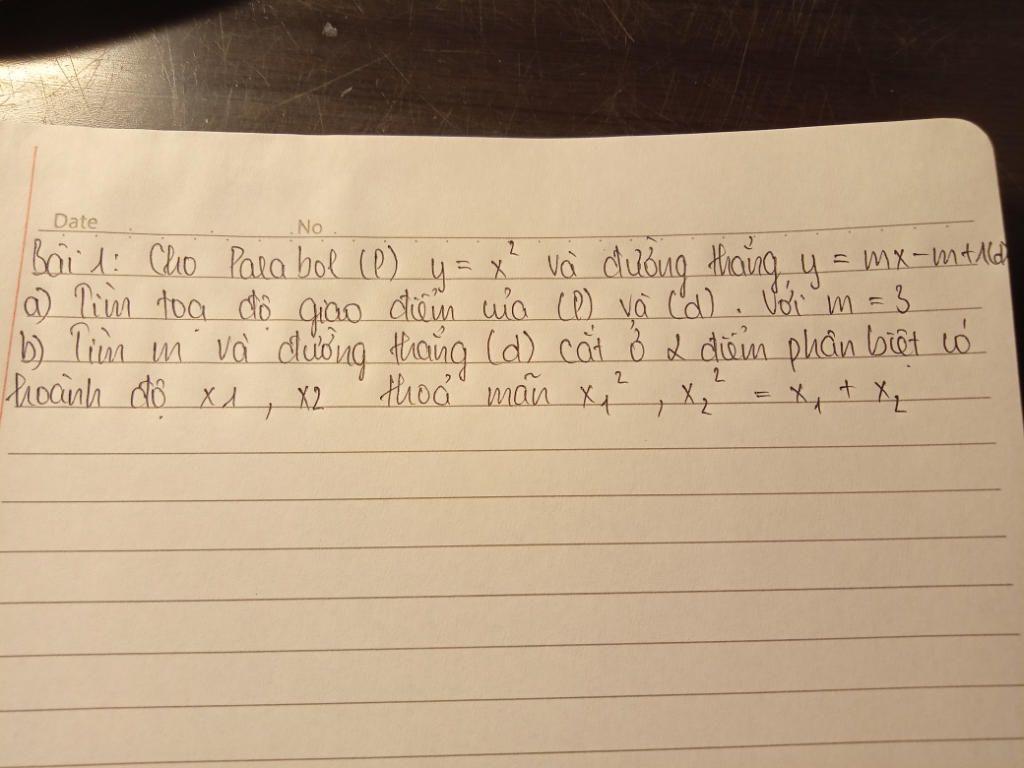 Date No
Bài 1: Cho Parabol (P) y = x² và đường thẳng y = mx - m + 1 (d)
a) Tìm toạ độ giao điểm của (P) và (d). Với m = 3
b) Tìm m và đường thẳng (d) cắt ở 2 điểm phân biệt có
hoành độ x1, x2 thoả mãn x₁², x₂² = x₁ + x₂